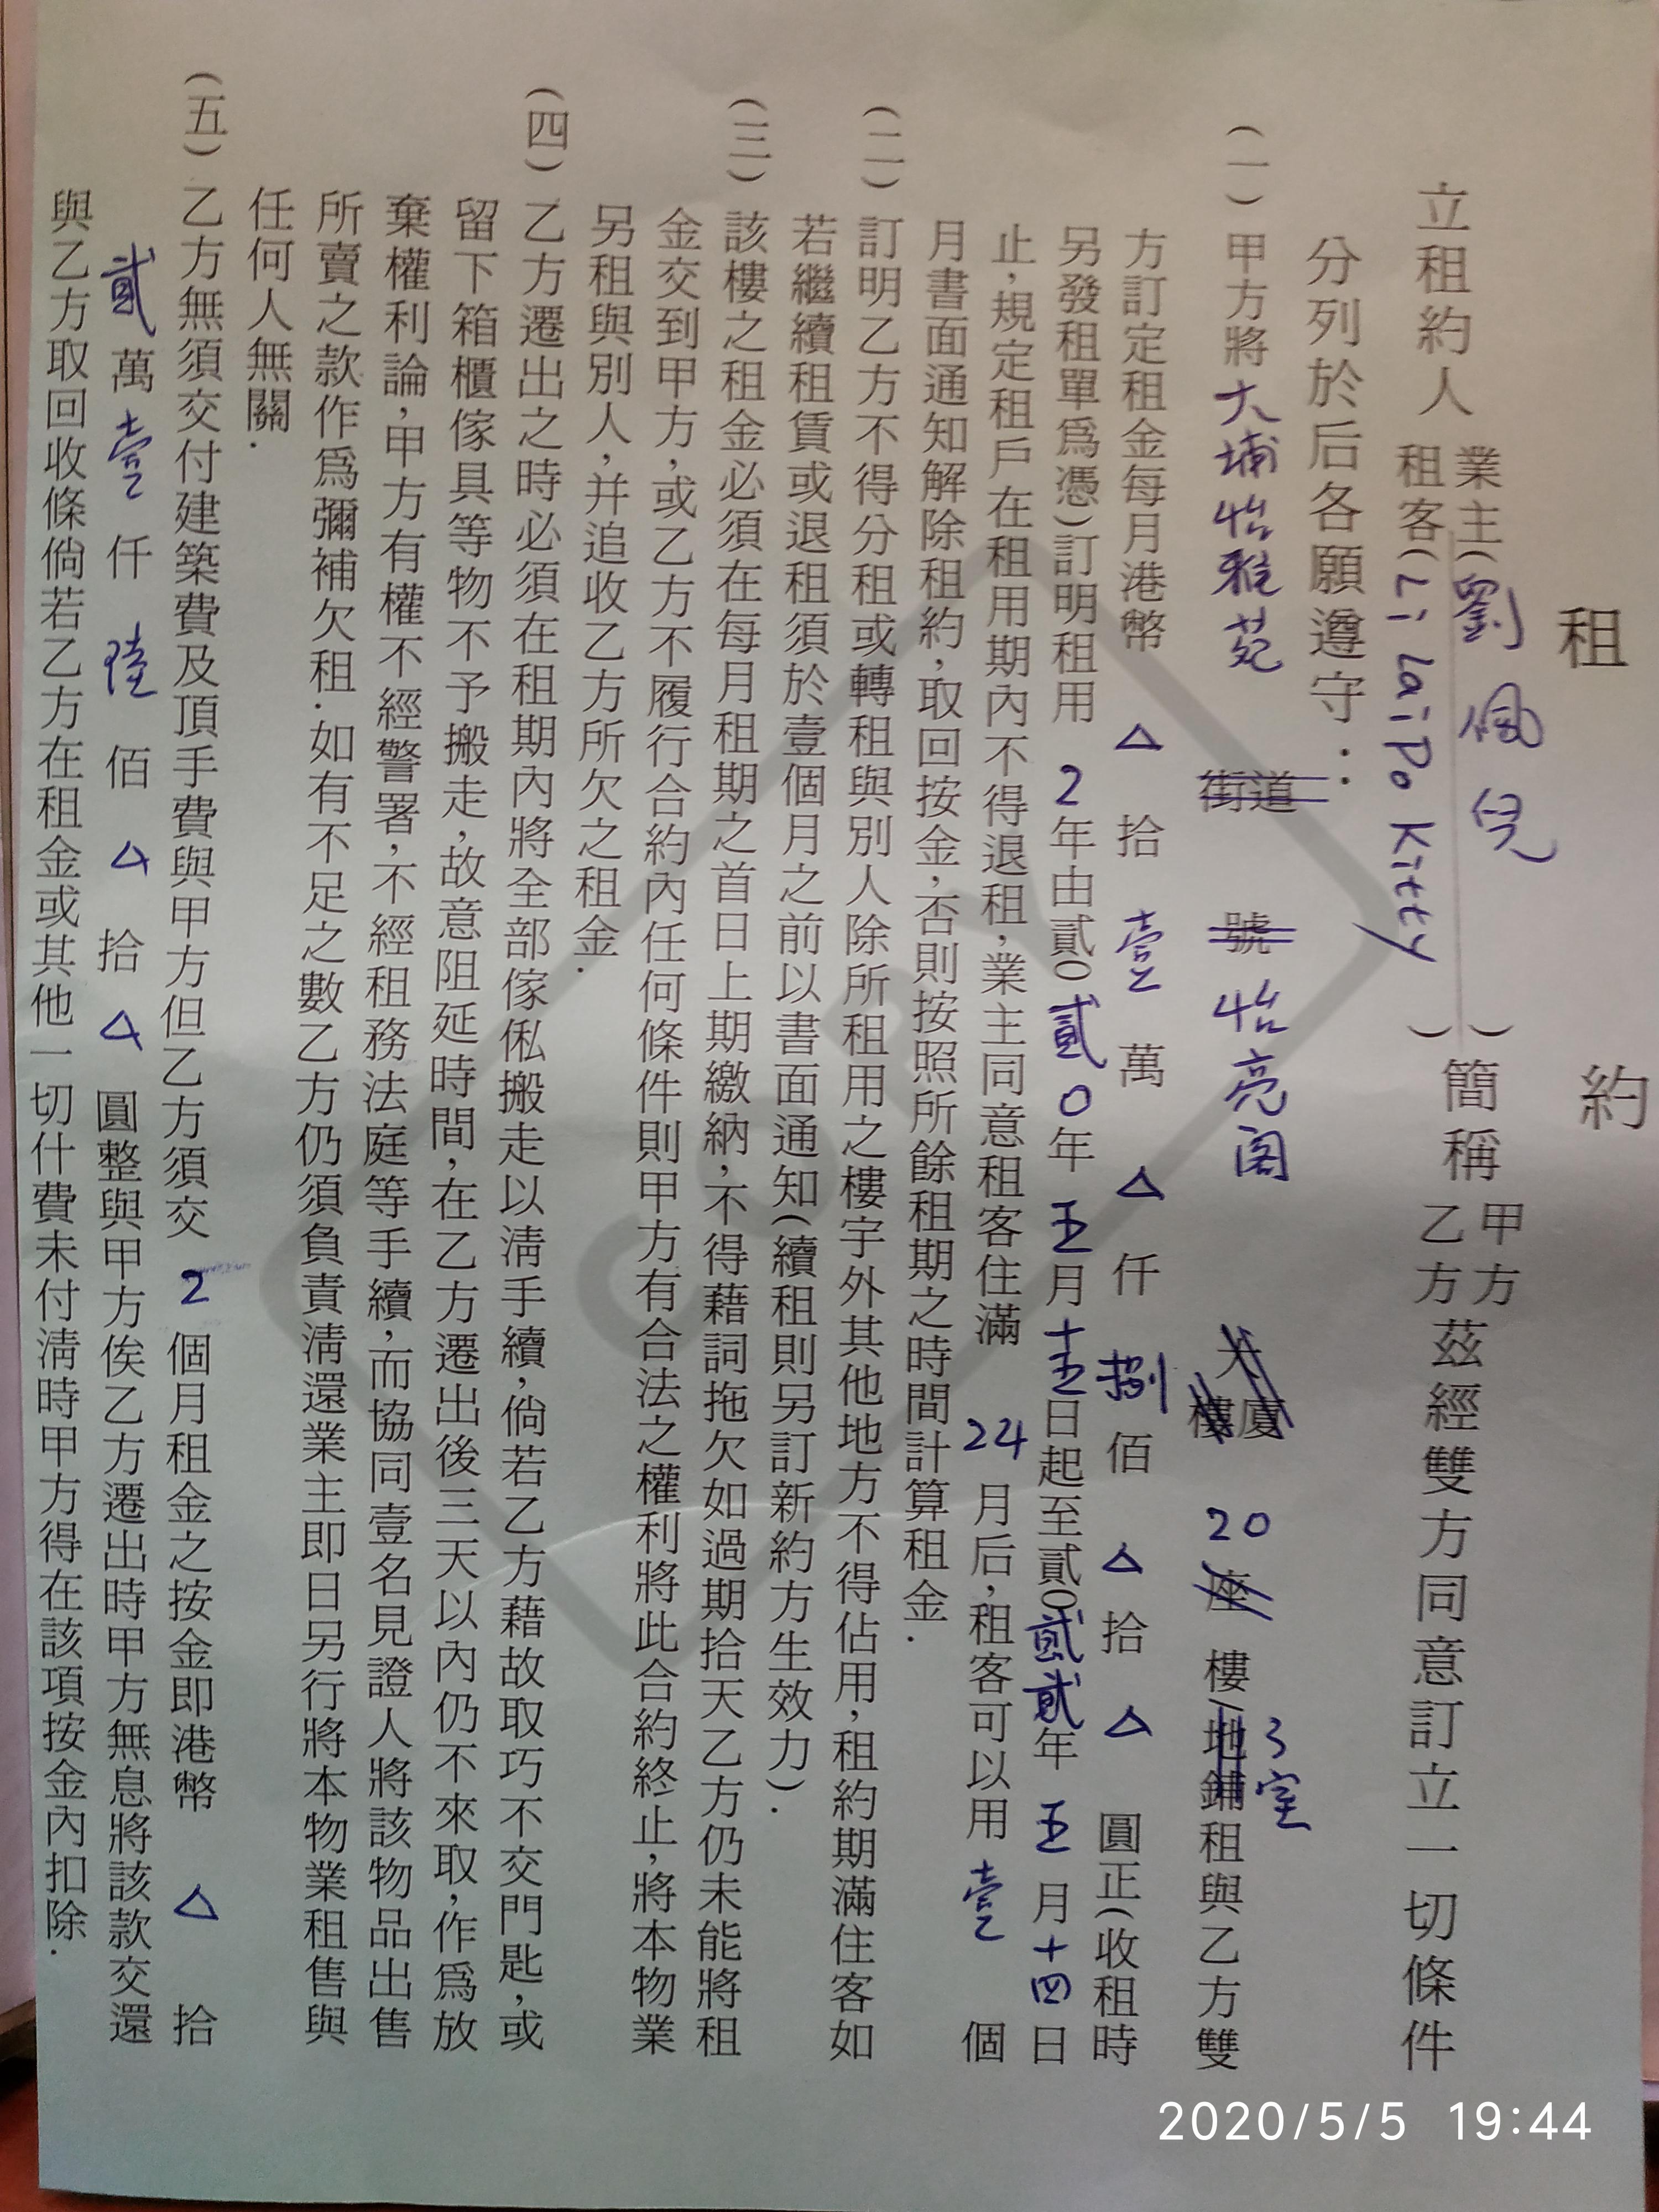 租 約
立租約人 業主(劉佩兒)簡稱甲方茲經雙方同意訂立一切條件
租客(Li Lai Po Kitty)乙方
分列於后各願遵守：
(一)甲方將大埔怡雅苑 街道 號 怡亮閣 大廈樓 20 座 樓 3室 地鋪租與乙方雙
方訂定租金每月港幣 △ 拾 壹 萬 △ 仟 捌 佰 △ 拾 △ 圓正(收租時
另發租單爲憑)訂明租用 2 年由貳0貳0年 五月十五日起至貳0貳貳年 五月十四日
止，規定租戶在租用期內不得退租，業主同意租客住滿 24 月后，租客可以用 壹 個
月書面通知解除租約，取回按金，否則按照所餘租期之時間計算租金．
(二)訂明乙方不得分租或轉租與別人除所租用之樓宇外其他地方不得佔用，租約期滿住客如
若繼續租賃或退租須於壹個月之前以書面通知(續租則另訂新約方生效力)．
(三)該樓之租金必須在每月租期之首日上期繳納，不得藉詞拖欠如過期拾天乙方仍未能將租
金交到甲方，或乙方不履行合約內任何條件則甲方有合法之權利將此合約終止，將本物業
另租與別人，并追收乙方所欠之租金．
(四)乙方遷出之時必須在租期內將全部傢俬搬走以淸手續，倘若乙方藉故取巧不交門匙，或
留下箱櫃傢具等物不予搬走，故意阻延時間，在乙方遷出後三天以內仍不來取，作爲放
棄權利論，甲方有權不經警署，不經租務法庭等手續，而協同壹名見證人將該物品出售
所賣之款作爲彌補欠租．如有不足之數乙方仍須負責淸還業主即日另行將本物業租售與
任何人無關．
(五)乙方無須交付建築費及頂手費與甲方但乙方須交 2 個月租金之按金即港幣 △ 拾
貳 萬 壹 仟 陸 佰 △ 拾 △ 圓整與甲方俟乙方遷出時甲方無息將該款交還
與乙方取回收條倘若乙方在租金或其他一切什費未付淸時甲方得在該項按金內扣除．
COPY
2020/5/5 19:44